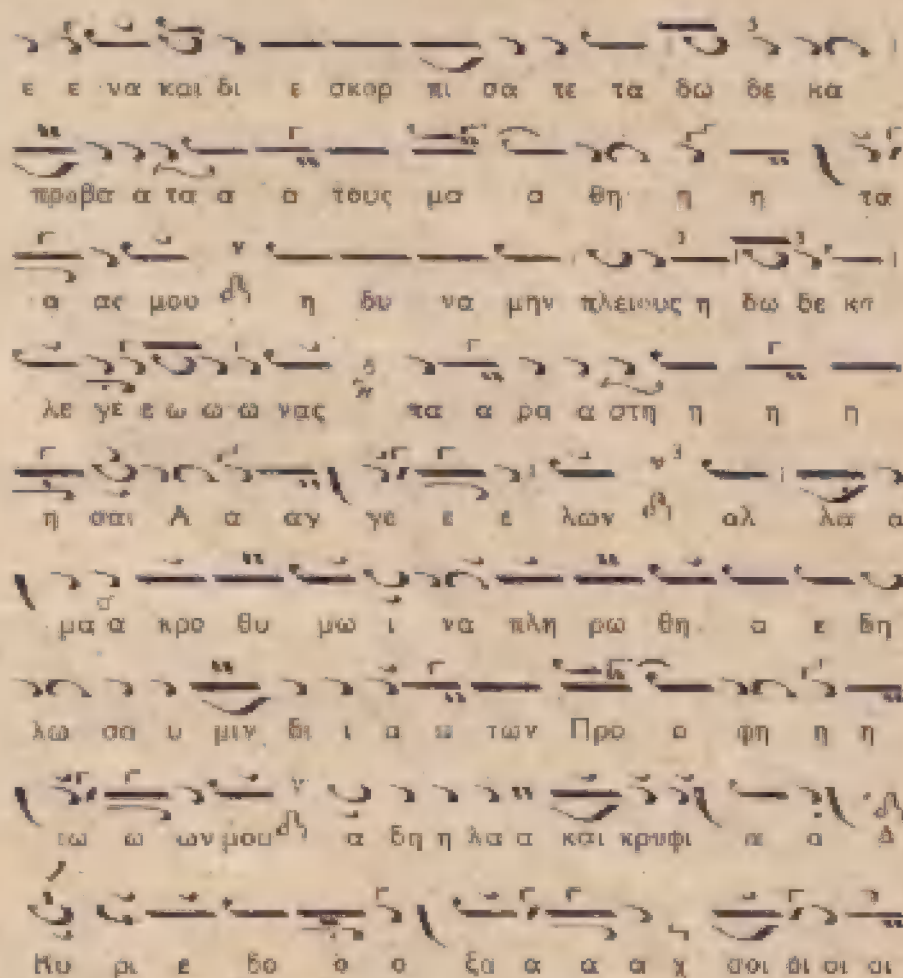 ε ε να και δι ε σκορ πι σα τε τα δω δε κα
προβα α τα α α τους μα α θη η η τα
α ας μου η δυ να μην πλειους η δω δε κα
λε γε ε ω ω ω νας πα α ρα α στη η η η
η σαι Α α αγ γε ε ε λων αλ λα α
μα α κρο θυ μω ι να πλη ρω θη α ε δη
λω σα υ μιν δι ι α α των Προ ο φη η η
τω ω ων μου α δη η λα α και κρυφι α α
Κυ ρι ε δο ο ο ξα α α α χ σοι οι οι οι